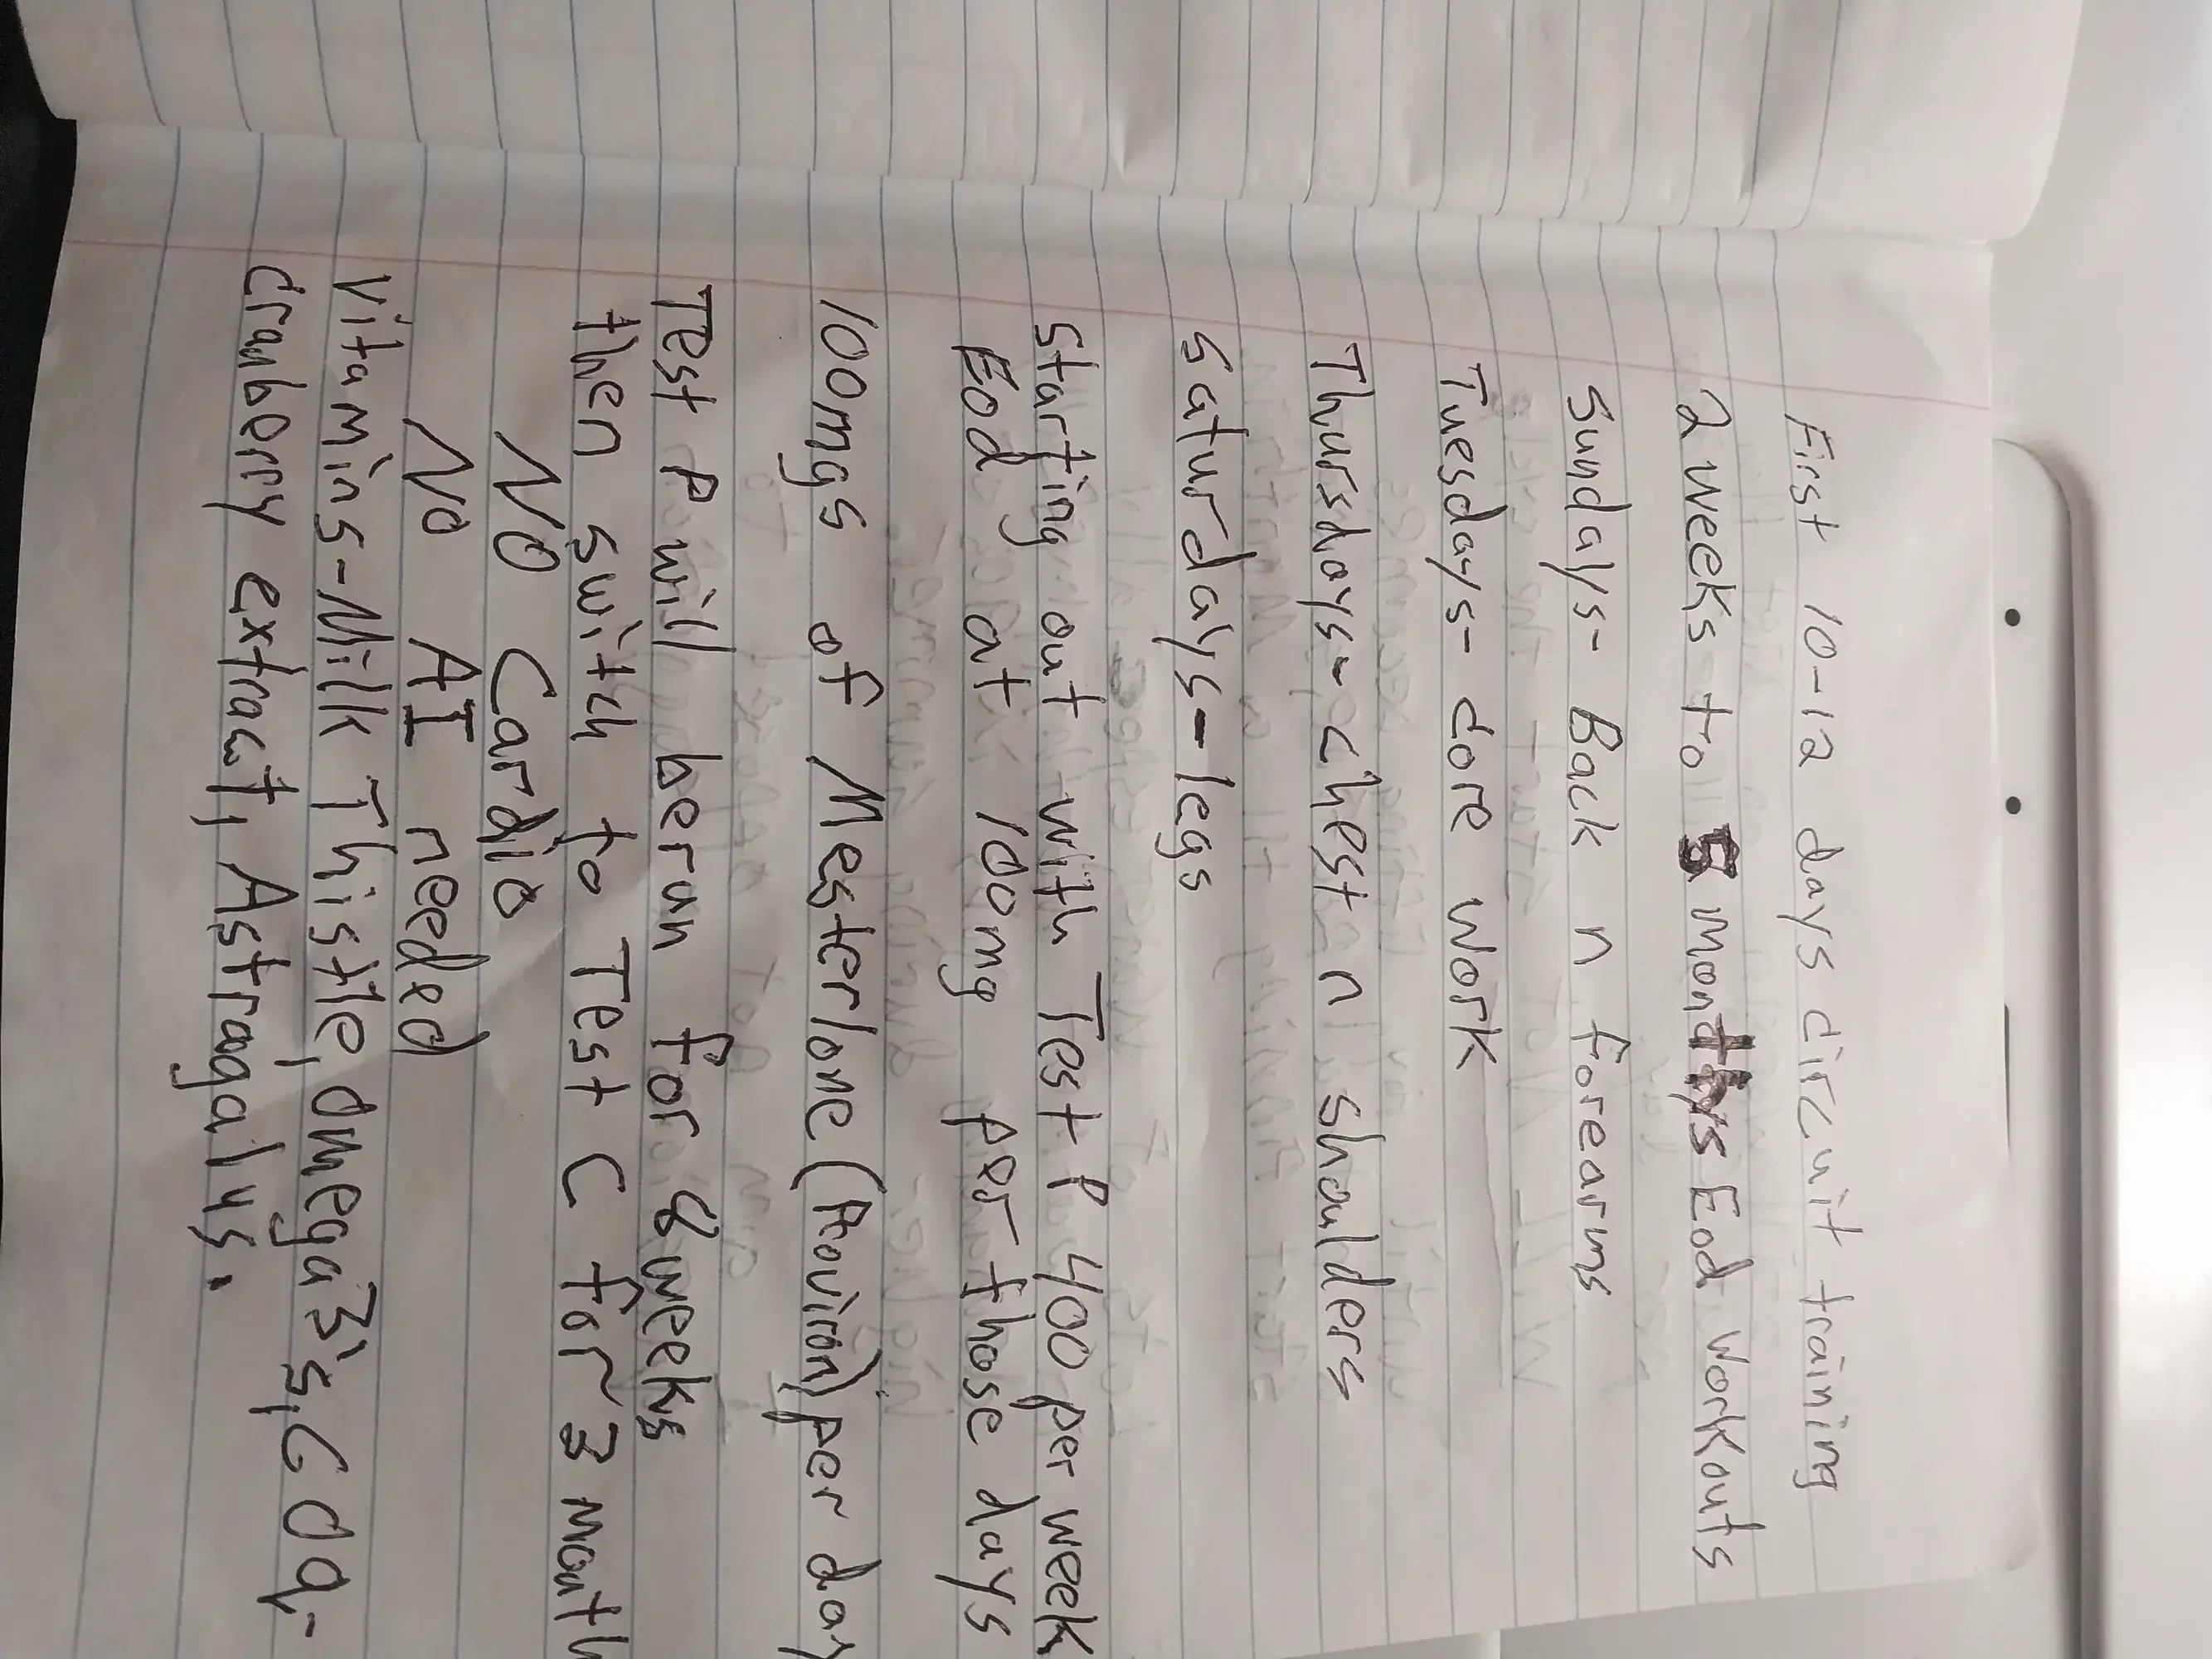 First 10-12 days circuit training
2 weeks to 5 months Eod workouts
Sundays- Back n forearms
Tuesdays- core work
Thursdays- chest n shoulders
Saturdays- legs
starting out with Test P 400 per week
Eod at 100mg per those days
100mgs of Mesterlone (Proviron) per day
Test P will be run for 8 weeks
then switch to Test C for 3 month
NO Cardio
No AI needed
Vitamins- Milk Thistle, omega 3's, COq-
cranberry extract, Astragalus.